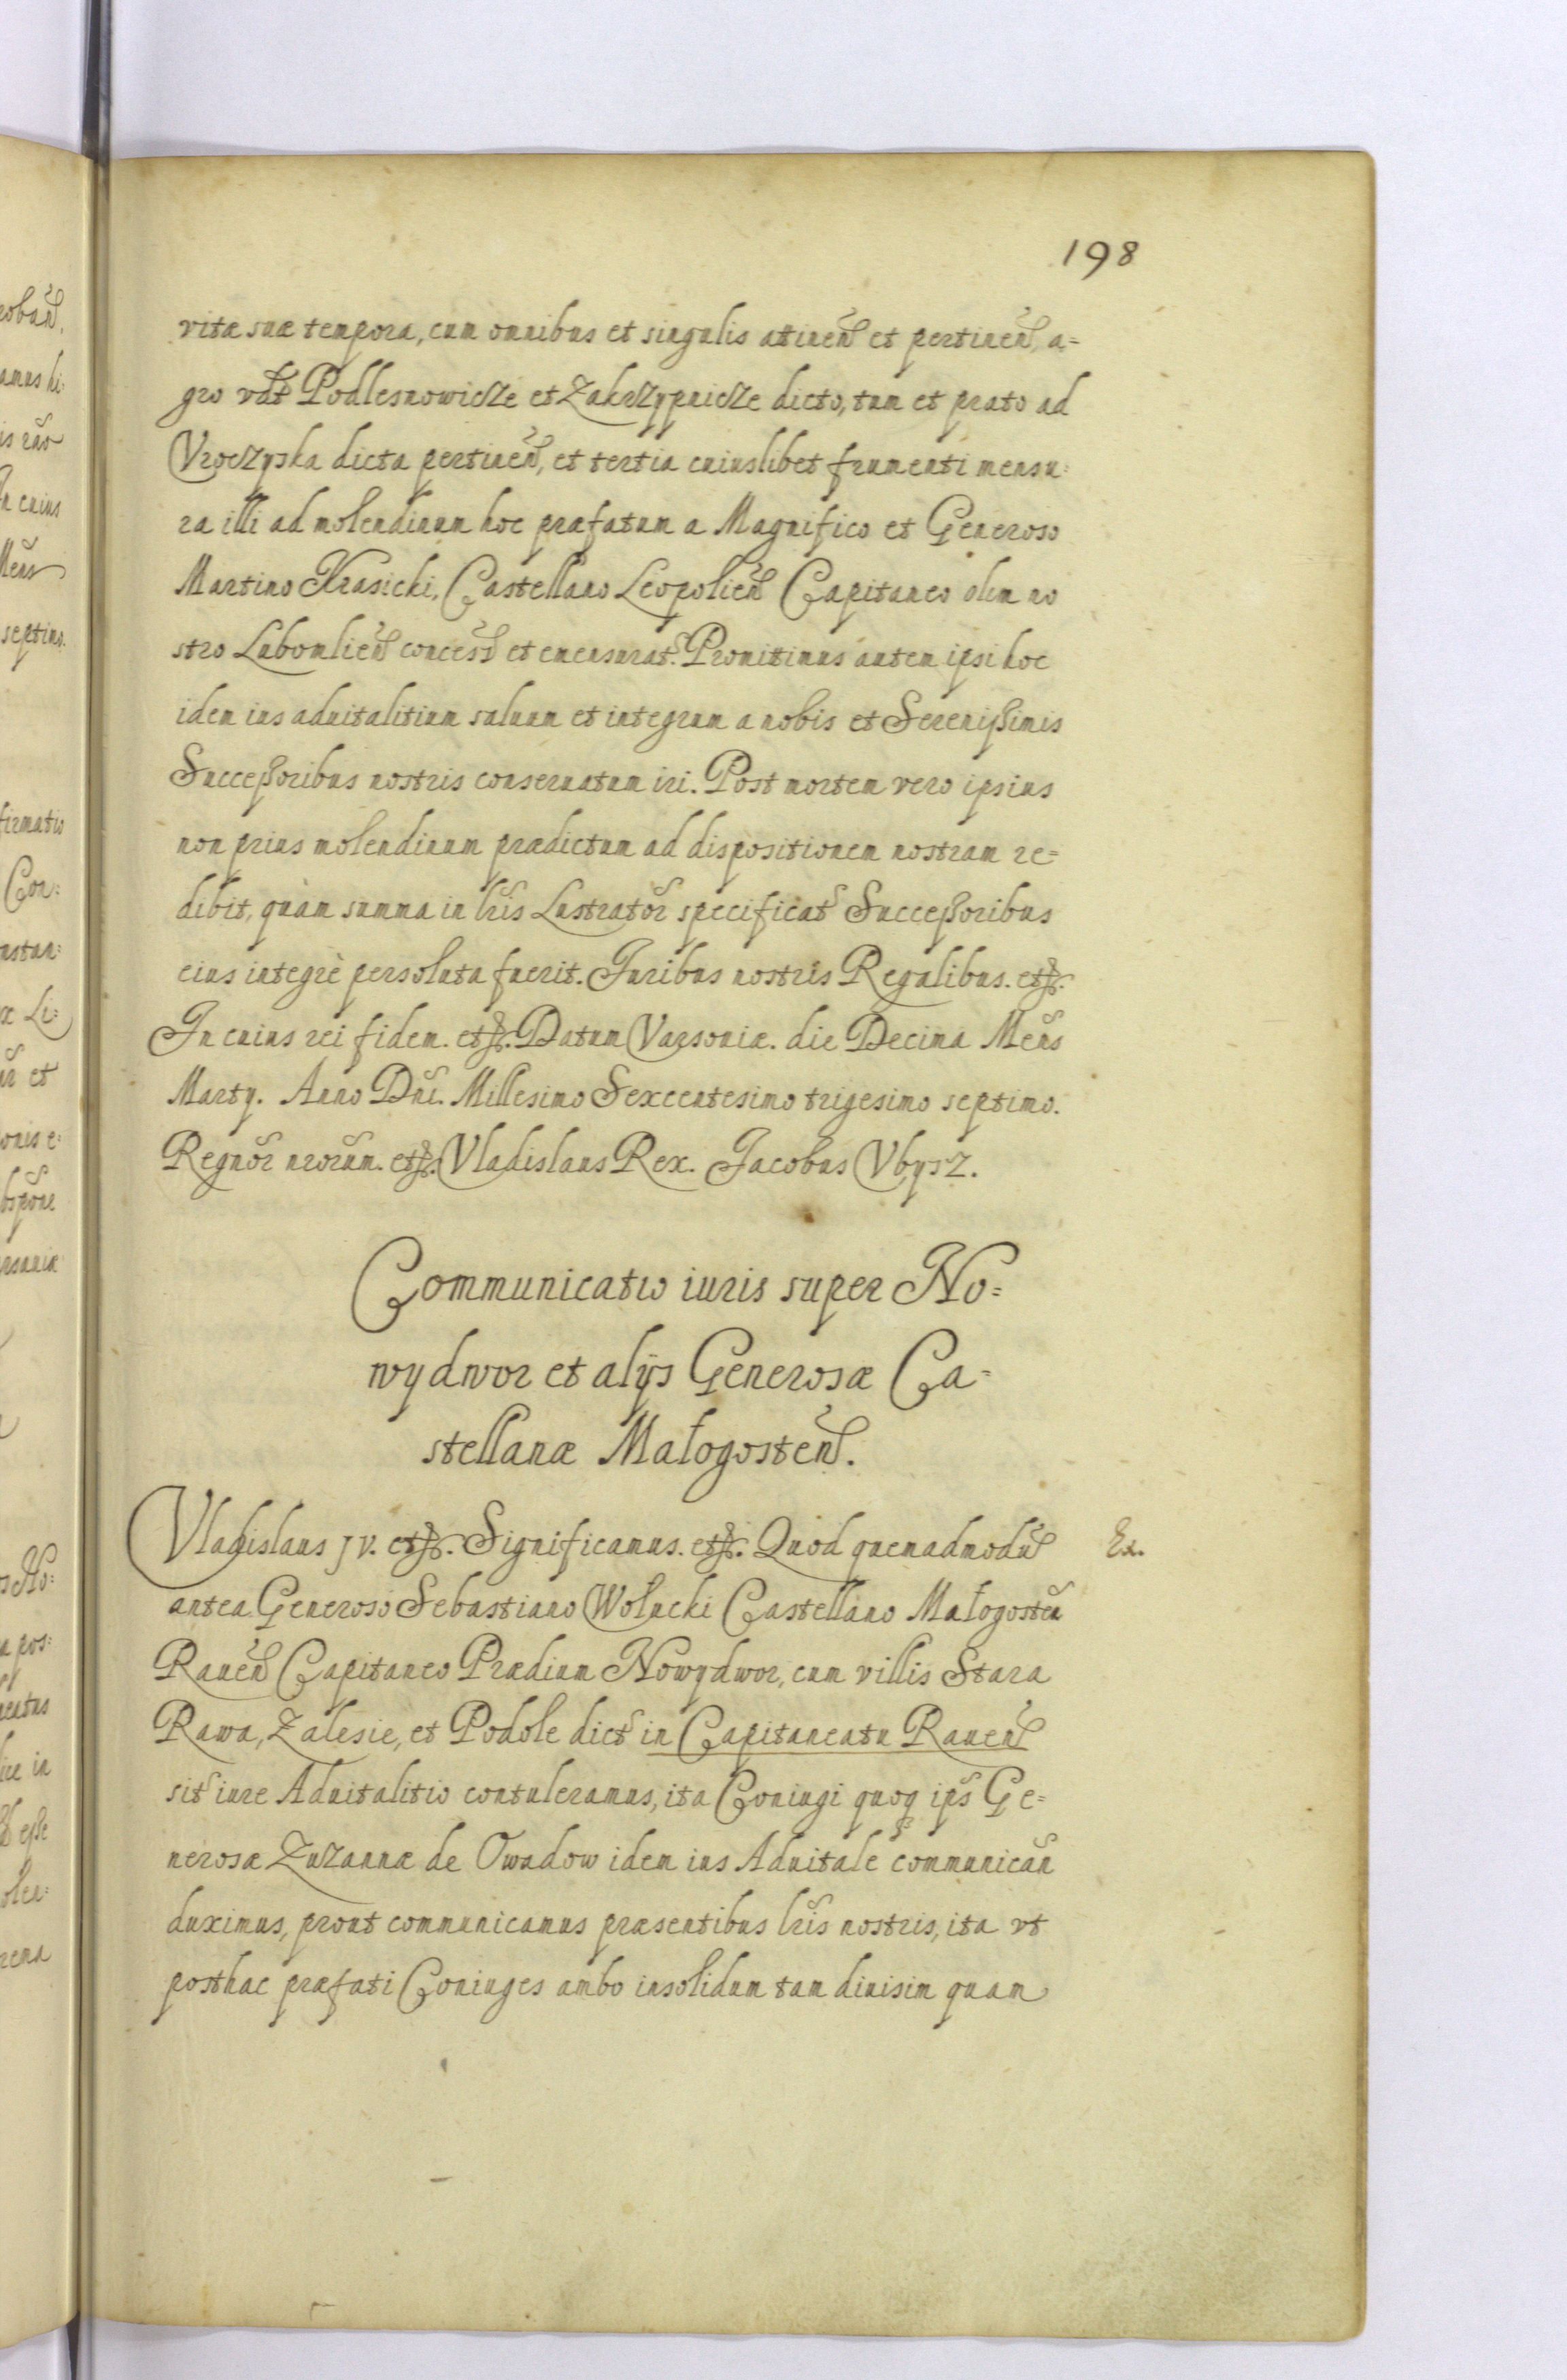 198
vitæ suæ tempora, cum omnibus et singulis atinen͂ et pertinen͂, a=
gro vdt͂ Podlesnowicze et Zakrzypnicze dicto, tum et prato ad
Vroczyska dicta pertinen͂, et tertia cuiuslibet frumenti mensu=
ra illi ad molendinum hoc præfatum a Magnifico et Generoso
Martino Krasicki, Castellano Leopolien͂ Capitaneo olim no
stro Lubomlien͂ concess͂ et emensurat͂. Promitimus autem ipsi hoc
idem ius aduitalitium saluum et integrum a nobis et Serenißimis
Succeßoribus nostris conseruatum iri. Post mortem vero ipsius
non prius molendinum prædictum ad dispositionem nostram re=
dibit, quàm summa in lr͂is Lustrator͂ specificat͂ Succeßoribus
eius integrè persoluta fuerit. Juribus nostris Regalibus. etc.
In cuius rei fidem. etc. Datum Varsoviæ. die Decima Men͂s
Martij. Anno Dn͂i. Millesimo Sexcentesimo trigesimo septimo.
Regnor͂ nr͂orum. etc. Vladislaus Rex. Jacobus Vbysz.
Communicatio iuris super No=
wydwor et alijs Generosæ Ca=
stellanæ Małogosten͂.
Vladislaus IV. etc. Significamus. etc. Quod quemadmodu͂
Ex.
antea Generoso Sebastiano Wołucki Castellano Małogosten͂
Rauen͂ Capitaneo Prædium Nowydwor, cum villis Stara
Rawa, Zalesie, et Podole dict͂ in Capitaneatu Rauen͂
sit͂ iure Aduitalitio contuleramus, ita Coniugi quoq ips͂ Ge=
nerosæ Zuzannæ de Owadow idem ius Aduitale communican͂
duximus, prout communicamus præsentibus lr͂is nostris, ita vt
posthac præfati Coniuges ambo insolidum tam diuisim quam